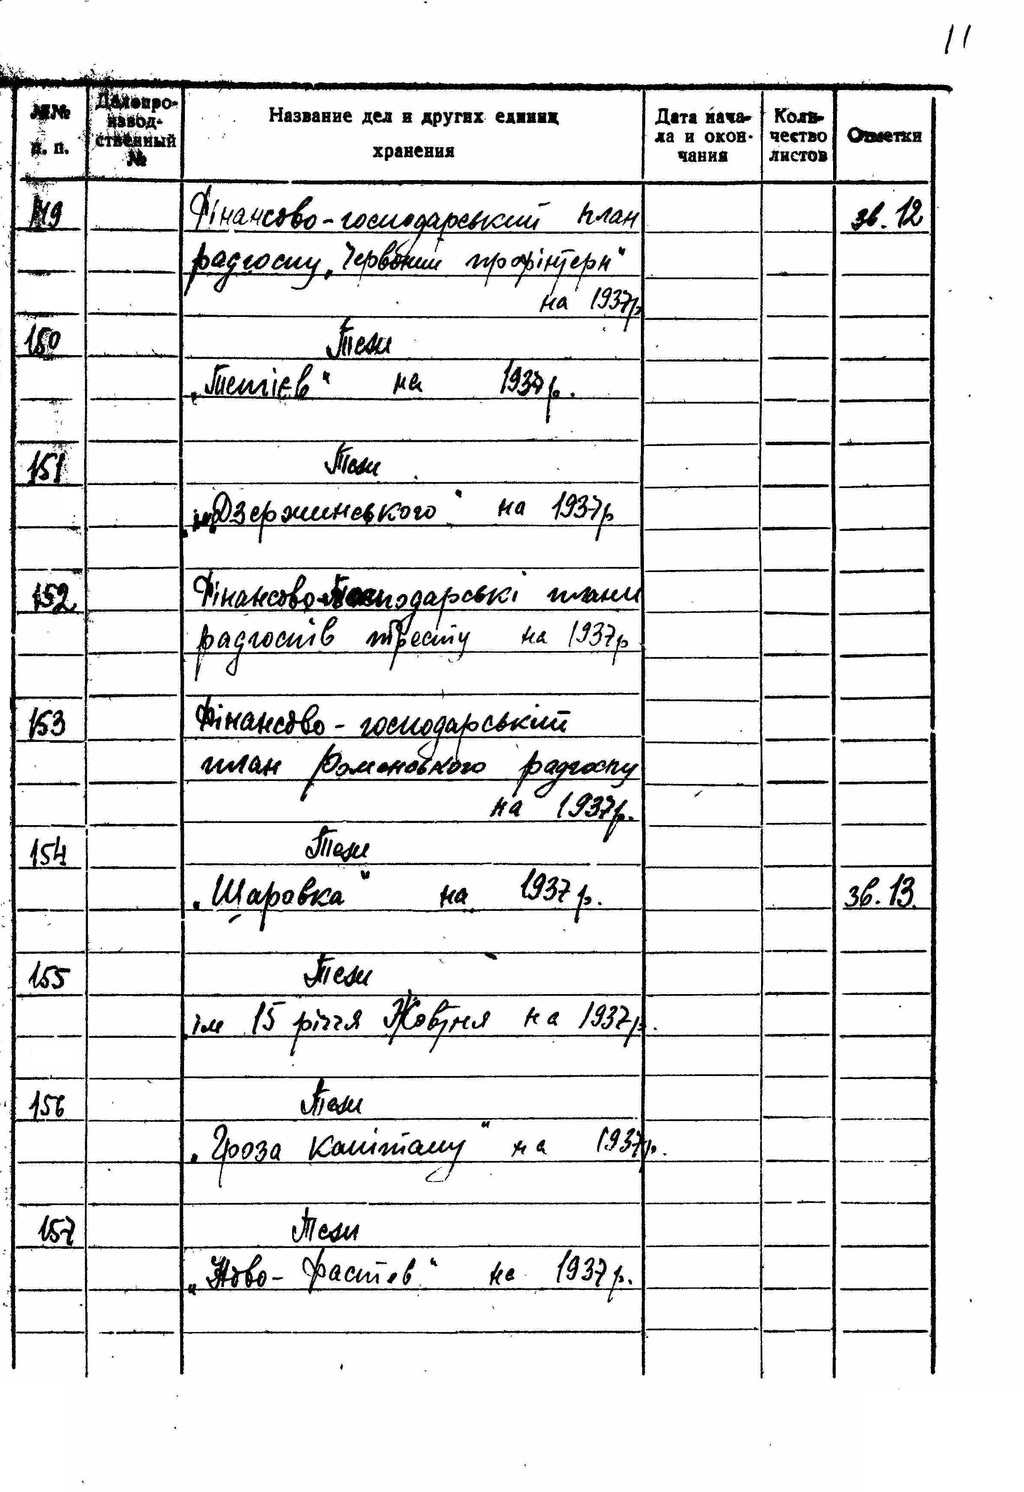 11
№№ п. п. Делопроизводственный № Название дел и других единиц хранения Дата начала и окончания Количество листов Отметки
149 Фінансово-господарський план зв. 12
радгоспу „Червоний профінтерн"
на 1937р
150 Тези
„Тетієв" на 1937р.
151 Тези
ім. „Дзержинського" на 1937р
152 Фінансово-господарські плани
радгоспів тресту на 1937р
153 Фінансово-господарський
план Роменського радгоспу
на 1937р.
154 Тези
„Шаровка" на 1937р. зв. 13.
155 Тези
ім 15 річчя Жовтня на 1937р.
156 Тези
„Гроза капіталу" на 1937р.
157 Тези
„Ново-Фастів" на 1937р.